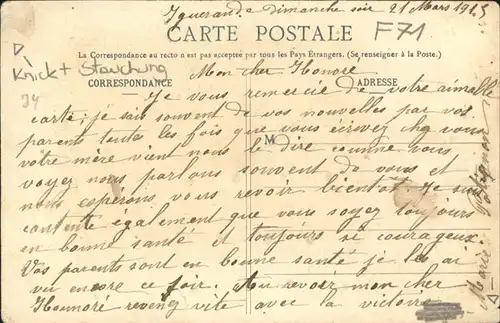 Iguerande dimanche soir 21 Mars 1915
F71
CARTE POSTALE
La Correspondance au recto n'est pas acceptée par tous les Pays Étrangers. (Se renseigner à la Poste.)
Knick + Stauchung
CORRESPONDANCE
ADRESSE
Mon cher Honoré
Je vous remercie de votre aimable
carte; je sais souvent de vos nouvelles par vos
parents toutes les fois que vous écrivez chez vous
M
votre mère vient nous le dire comme vous
voyez nous parlons souvent de vous et
nous espérons vous revoir bientôt. Je suis
contente également que vous soyez toujours
en bonne santé et toujours si courageux
Vos parents sont en bonne santé je les ai
vu encore ce soir. Au revoir mon cher
Honnoré revenez vite avec la victoire
Marie